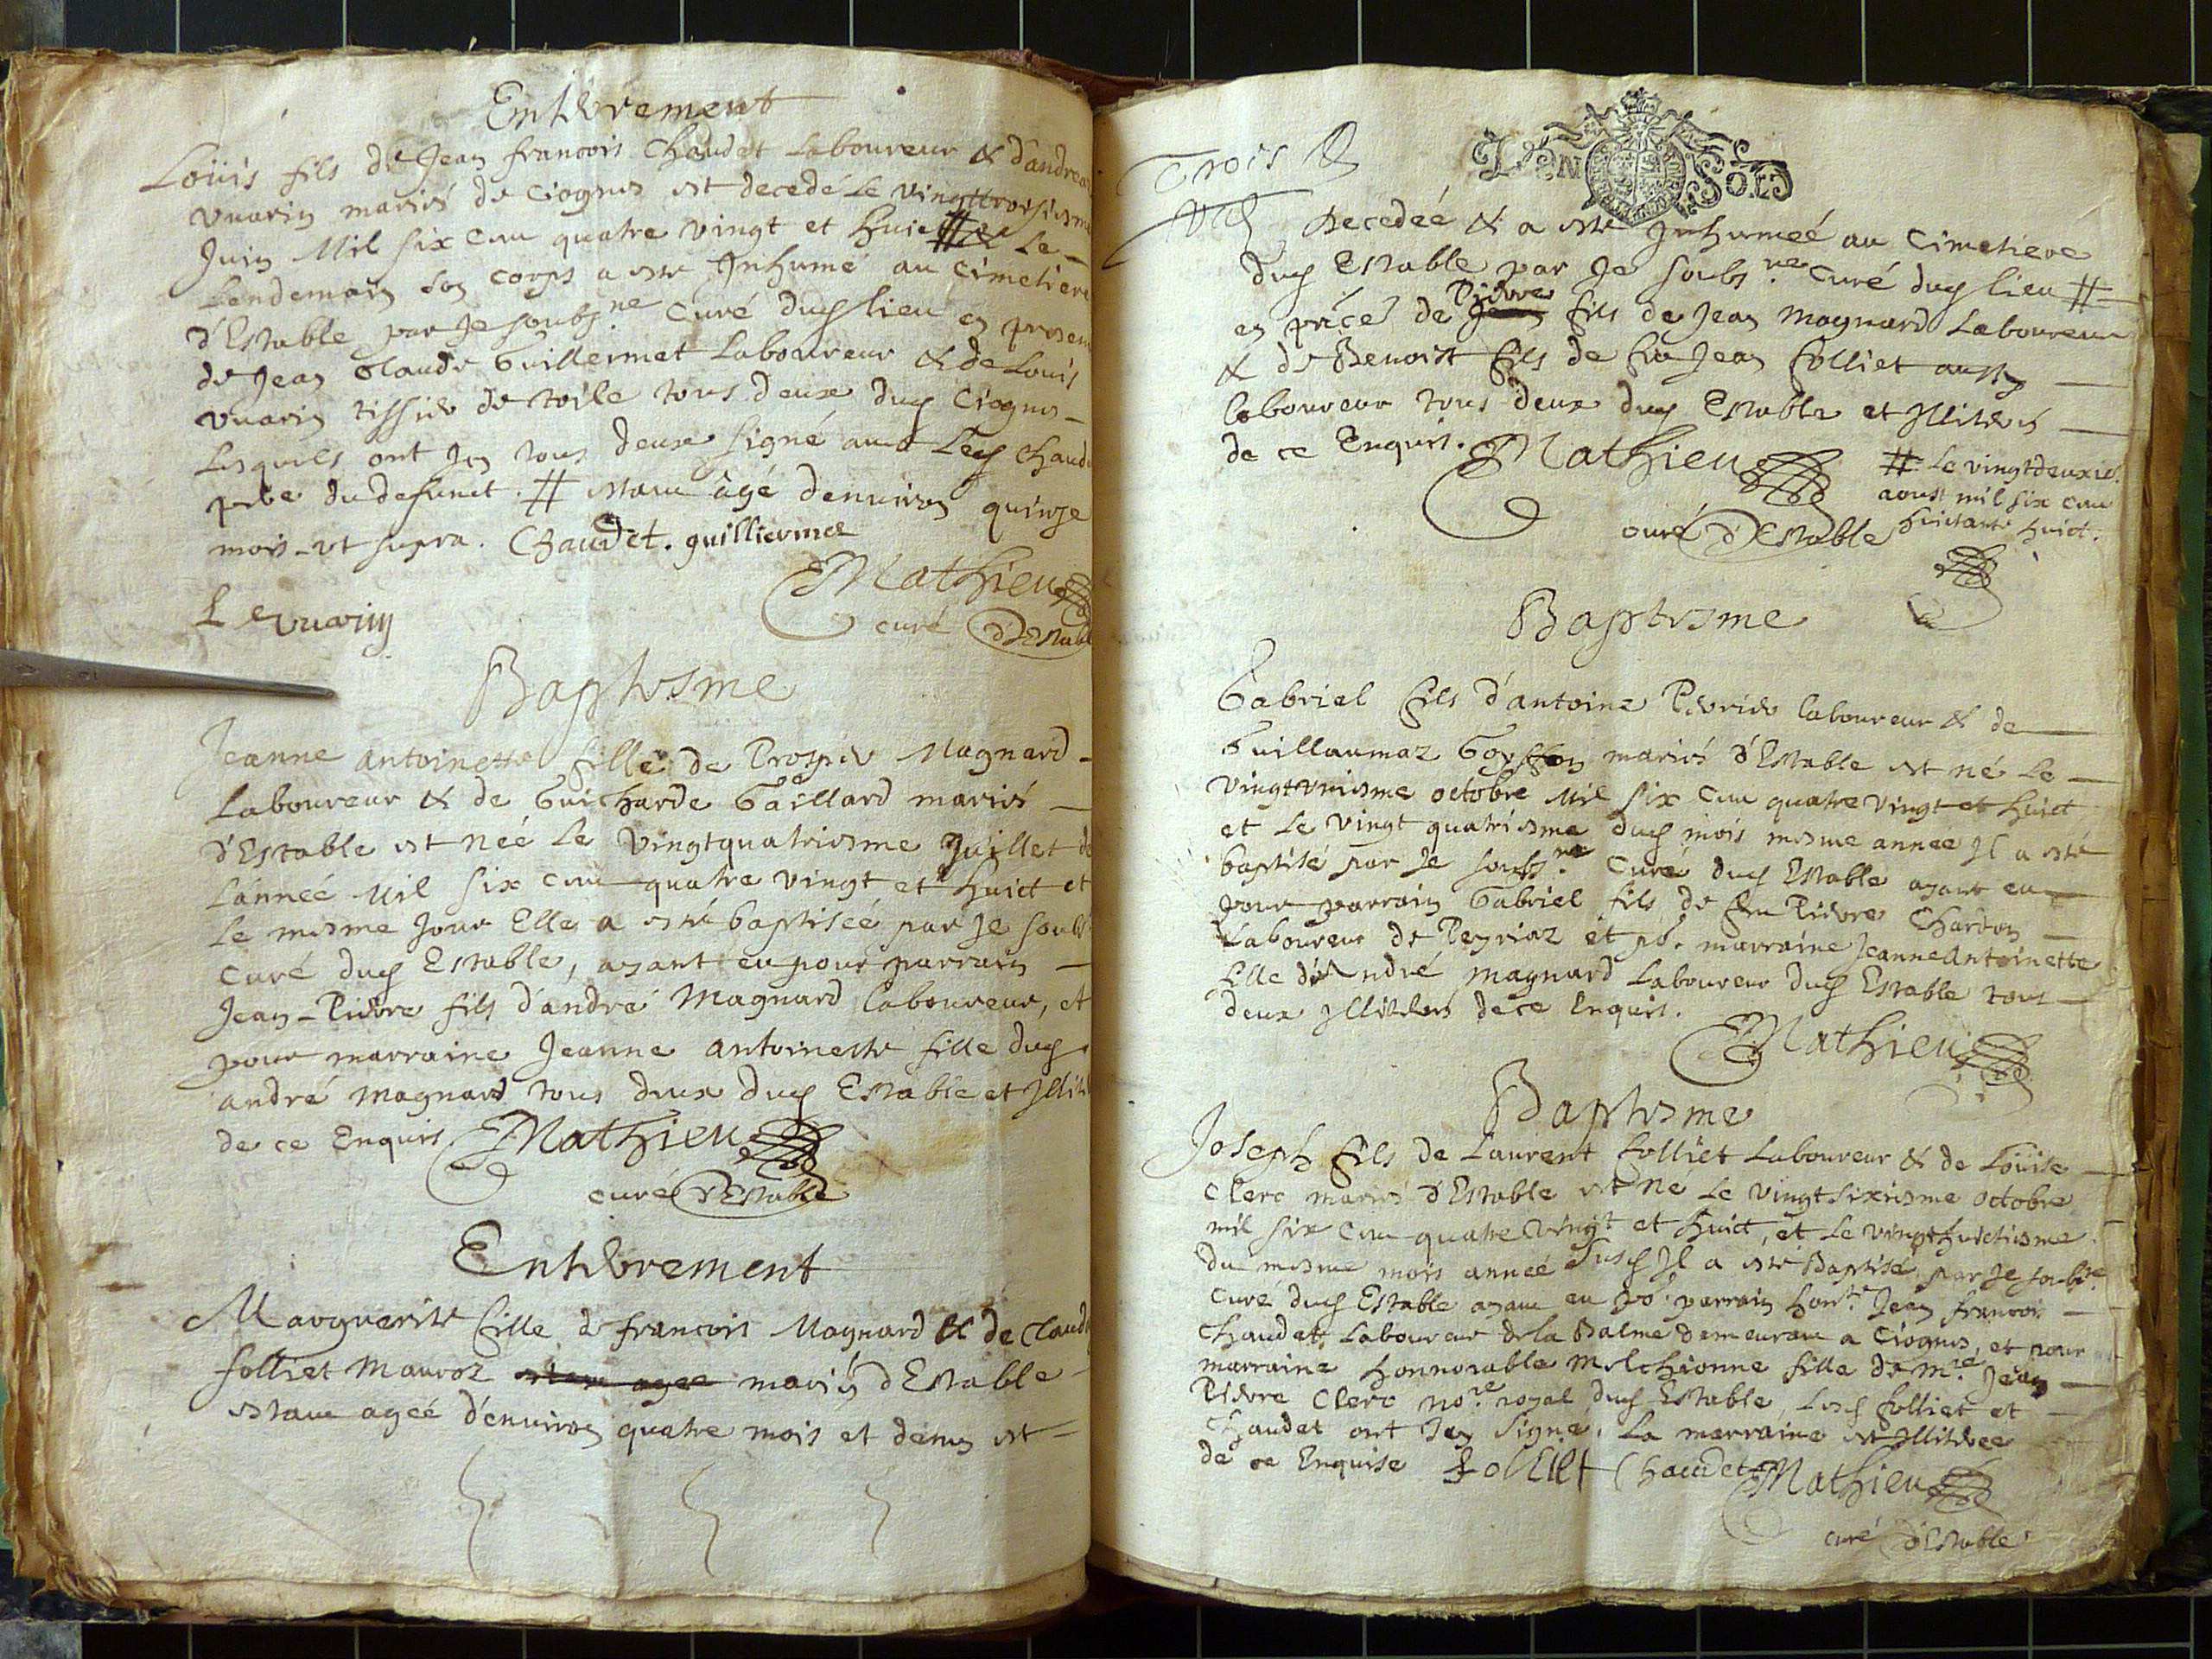 Entèrement
Loüis fils de Jean francois Chaudet Laboureur & d'andrea
vuarin mariés de Ciognes est decedé Le vingttroisiesme
Juin Mil six cens quatre vingt et huict # & Le
Lendemain son corps a esté Inhumé au Cimetiere
d'Estable par Je soubsne Curé dud lieu en presen
de Jean Claude Guillermet Laboureur & de Louis
vuarin tissier de toile tous deux dud Ciognes
Lesquels ont Icy tous deux signé avec Led Chaud
pere du defunct. # estant âgé denviron quinze
mois ut supra. Chaudet. guilliermet
L vuariny
Mathieu
curé d'Establ
Baptesme
Jeanne antoinette fille de Prosper Magnard
Laboureur & de Guicharde Gaillard mariés
d'Estable est née Le vingtquatriesme Juillet de
Lánnée Mil six cens quatre vingt et huict et
Le mesme Jour Elle a esté baptisée par Je soubs
Curé dud Estable, ayant eu pour parrain
Jean-Pierre fils d'andré Magnard laboureur, et
pour marraine Jeanne antoinette fille dud
andré Magnard tous deux dud Estable et Illite
de ce Enquis Mathieu
curé d'Estable
Entèrement
Marguerite fille de francois Magnard & de Claud
folliet Mauroz estan agee mariés d'Estable
estant ageé d'environ quatre mois et demy est
Trois
DEN SOLS
Decedeé & a esté Inhumeé au Cimetiere
dud Estable par Je soubsne Curé dud lieu #
en pñce de Jean Pierre fils de Jean Magnard Laboureur
& de Benoist fils de feu Jean folliet aussy
laboureur tous deux dud Estable et Illiterés
de ce Enquis. Mathieu
curé d'Estable
# Le vingtdeuxie.
aoust mil six cens
huictante huict.
Baptesme
Gabriel fils d'antoine Perrier laboureur & de
Guillaumaz mariés d'Estable est né Le
vingtvniesme octobre Mil six cens quatre vingt et huict
et Le vingt quatriesme dud mois mesme année Il a esté
baptisé par Je soubsne Curé dud Estable ayant eu
pour parrain Gabriel fils de feu Pierre Chardon
Laboureur de Peyriaz et pô. marraine Jeanne Antoinette
fille d'André Magnard Laboureur dud Estable tous
deux Illiterés de ce Enquis.
Mathieu
Baptesme
Joseph fils de Laurent folliet Laboureur & de Loüise
Clerc mariés d'Estable est né Le vingtsixiesme octobre
mil six cens quatre vingt et huict, et Le vingthuictiesme
du mesme mois année susd Il a esté Baptisé par Je soubsne
Curé dud Estable ayant eu pô. parrain honte. Jean francois
Chaudet Laboureur de la Balme demeurant a Ciognes, et pour
marraine honnorable Melchionne fille de Mre. Jean
Pierre Clerc nore. royal dud Estable, Lesd folliet et
Chaudet ont Icy signé. La marraine est Illiterée
de ce Enquise folliet Chaudet Mathieu
curé d'Estable